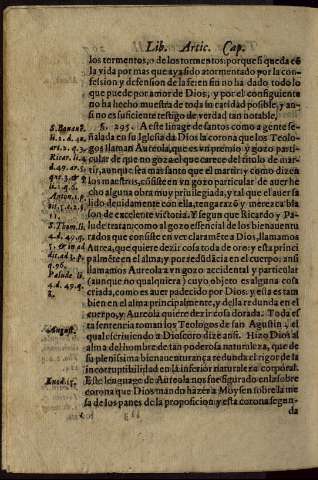 Lib. Artic. Cap.
los tormentos, o de los tormentos: porque si queda cõ
la vida por mas que aya sido atormentado por la con-
fession y defension de la fe: en fin no ha dado todo lo
que puede por amor de Dios, y por el consiguiente
no ha hecho muestra de toda su caridad posible, y an-
si no es suficiente testigo de verdad tan notable,
§. 295. A este linage de santos como a gente se-
ñalada en su Iglesia da Dios la corona que los Teolo-
gos llaman Aureola, que es vn premio y gozo parti-
cular de que no goza el que carece del titulo de mar-
tir, aunque sea mas santo que el martir: y como dizen
los maestros, consiste en vn gozo particular de auer he
cho alguna obra muy priuilegiada, y tal que el auer sa
lido deuidamente con ella, tengarazõ y merezca bla
son de excelente victoria. Y segun que Ricardo y Pa-
lude tratan: como al gozo essencial de los bienauentu
rados que consiste en ver claramẽte a Dios, llamamos
Aurea, que quiere dezir cosa toda de oro: y esta princi
palmẽte en el alma; y por redũdãcia en el cuerpo: ansi
llamamos Aureola a vn gozo accidental y particular
(aunque no qualquiera) cuyo objeto es alguna cosa
criada, como es auer padecido por Dios: y esta es tam
bien en el alma principalmente, y della redunda en el
cuerpo, y Aureola quiere dezir cosa dorada. Toda es
ta sentencia toman los Teologos de san Agustin, el
qual escriuiendo a Dioscoro dize ansi. Hizo Dios al
alma del hombre de tan poderosa naturaleza, que de
su plenissima bienauenturança redunda el rigor de la
incorruptibilidad en la inferior naturaleza corporal.
Este lenguage de Aureola nos fue figurado en la sobre
corona que Dios mandò hazer a Moysen sobre la me
sa de los panes de la proposicion: y esta corona segun-
da
S. Bonauẽ.
li. 2. d. 42.
art. 2. q. 3.
Ricar. li. 4
d. 49. ar. 5.
li. 1. q. 6.
S. Tho. li.
4. d. 49. q.
q. 96.
Palude. li.
4. d. 49. q.
8.
August.
Exod. 25.